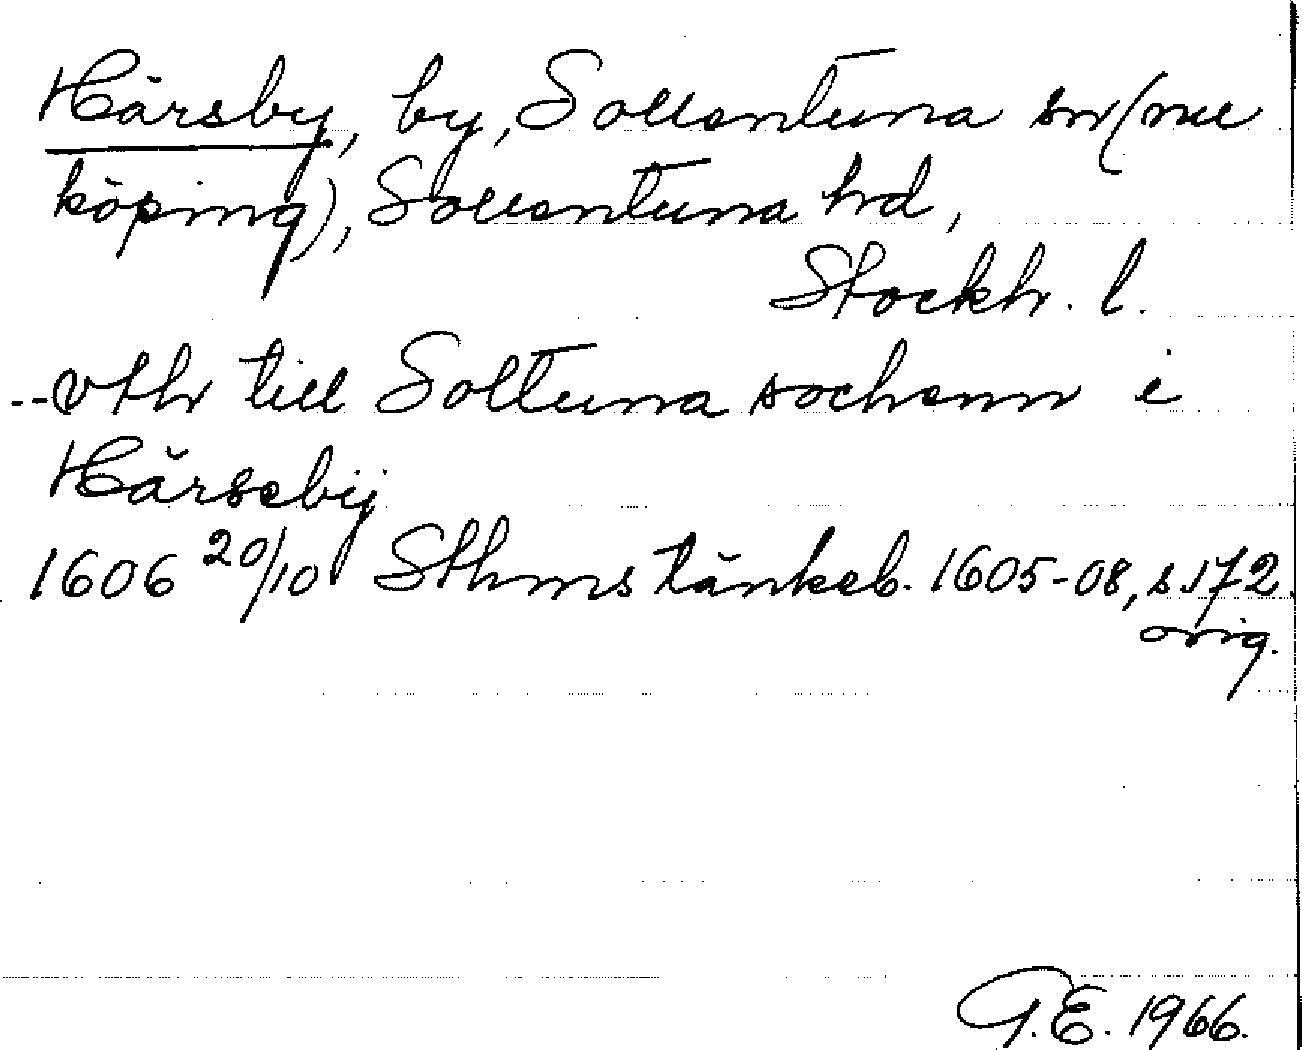 Hårsby, by, Sollentuna sn (nu
köping), Sollentuna hd,
Stockh. l.
--vthr till Soltuna sochenn i
Hårsebÿ
1606 20/10 Sthms tänkeb. 1605-08, s. 172.
orig.
G.E. 1966.